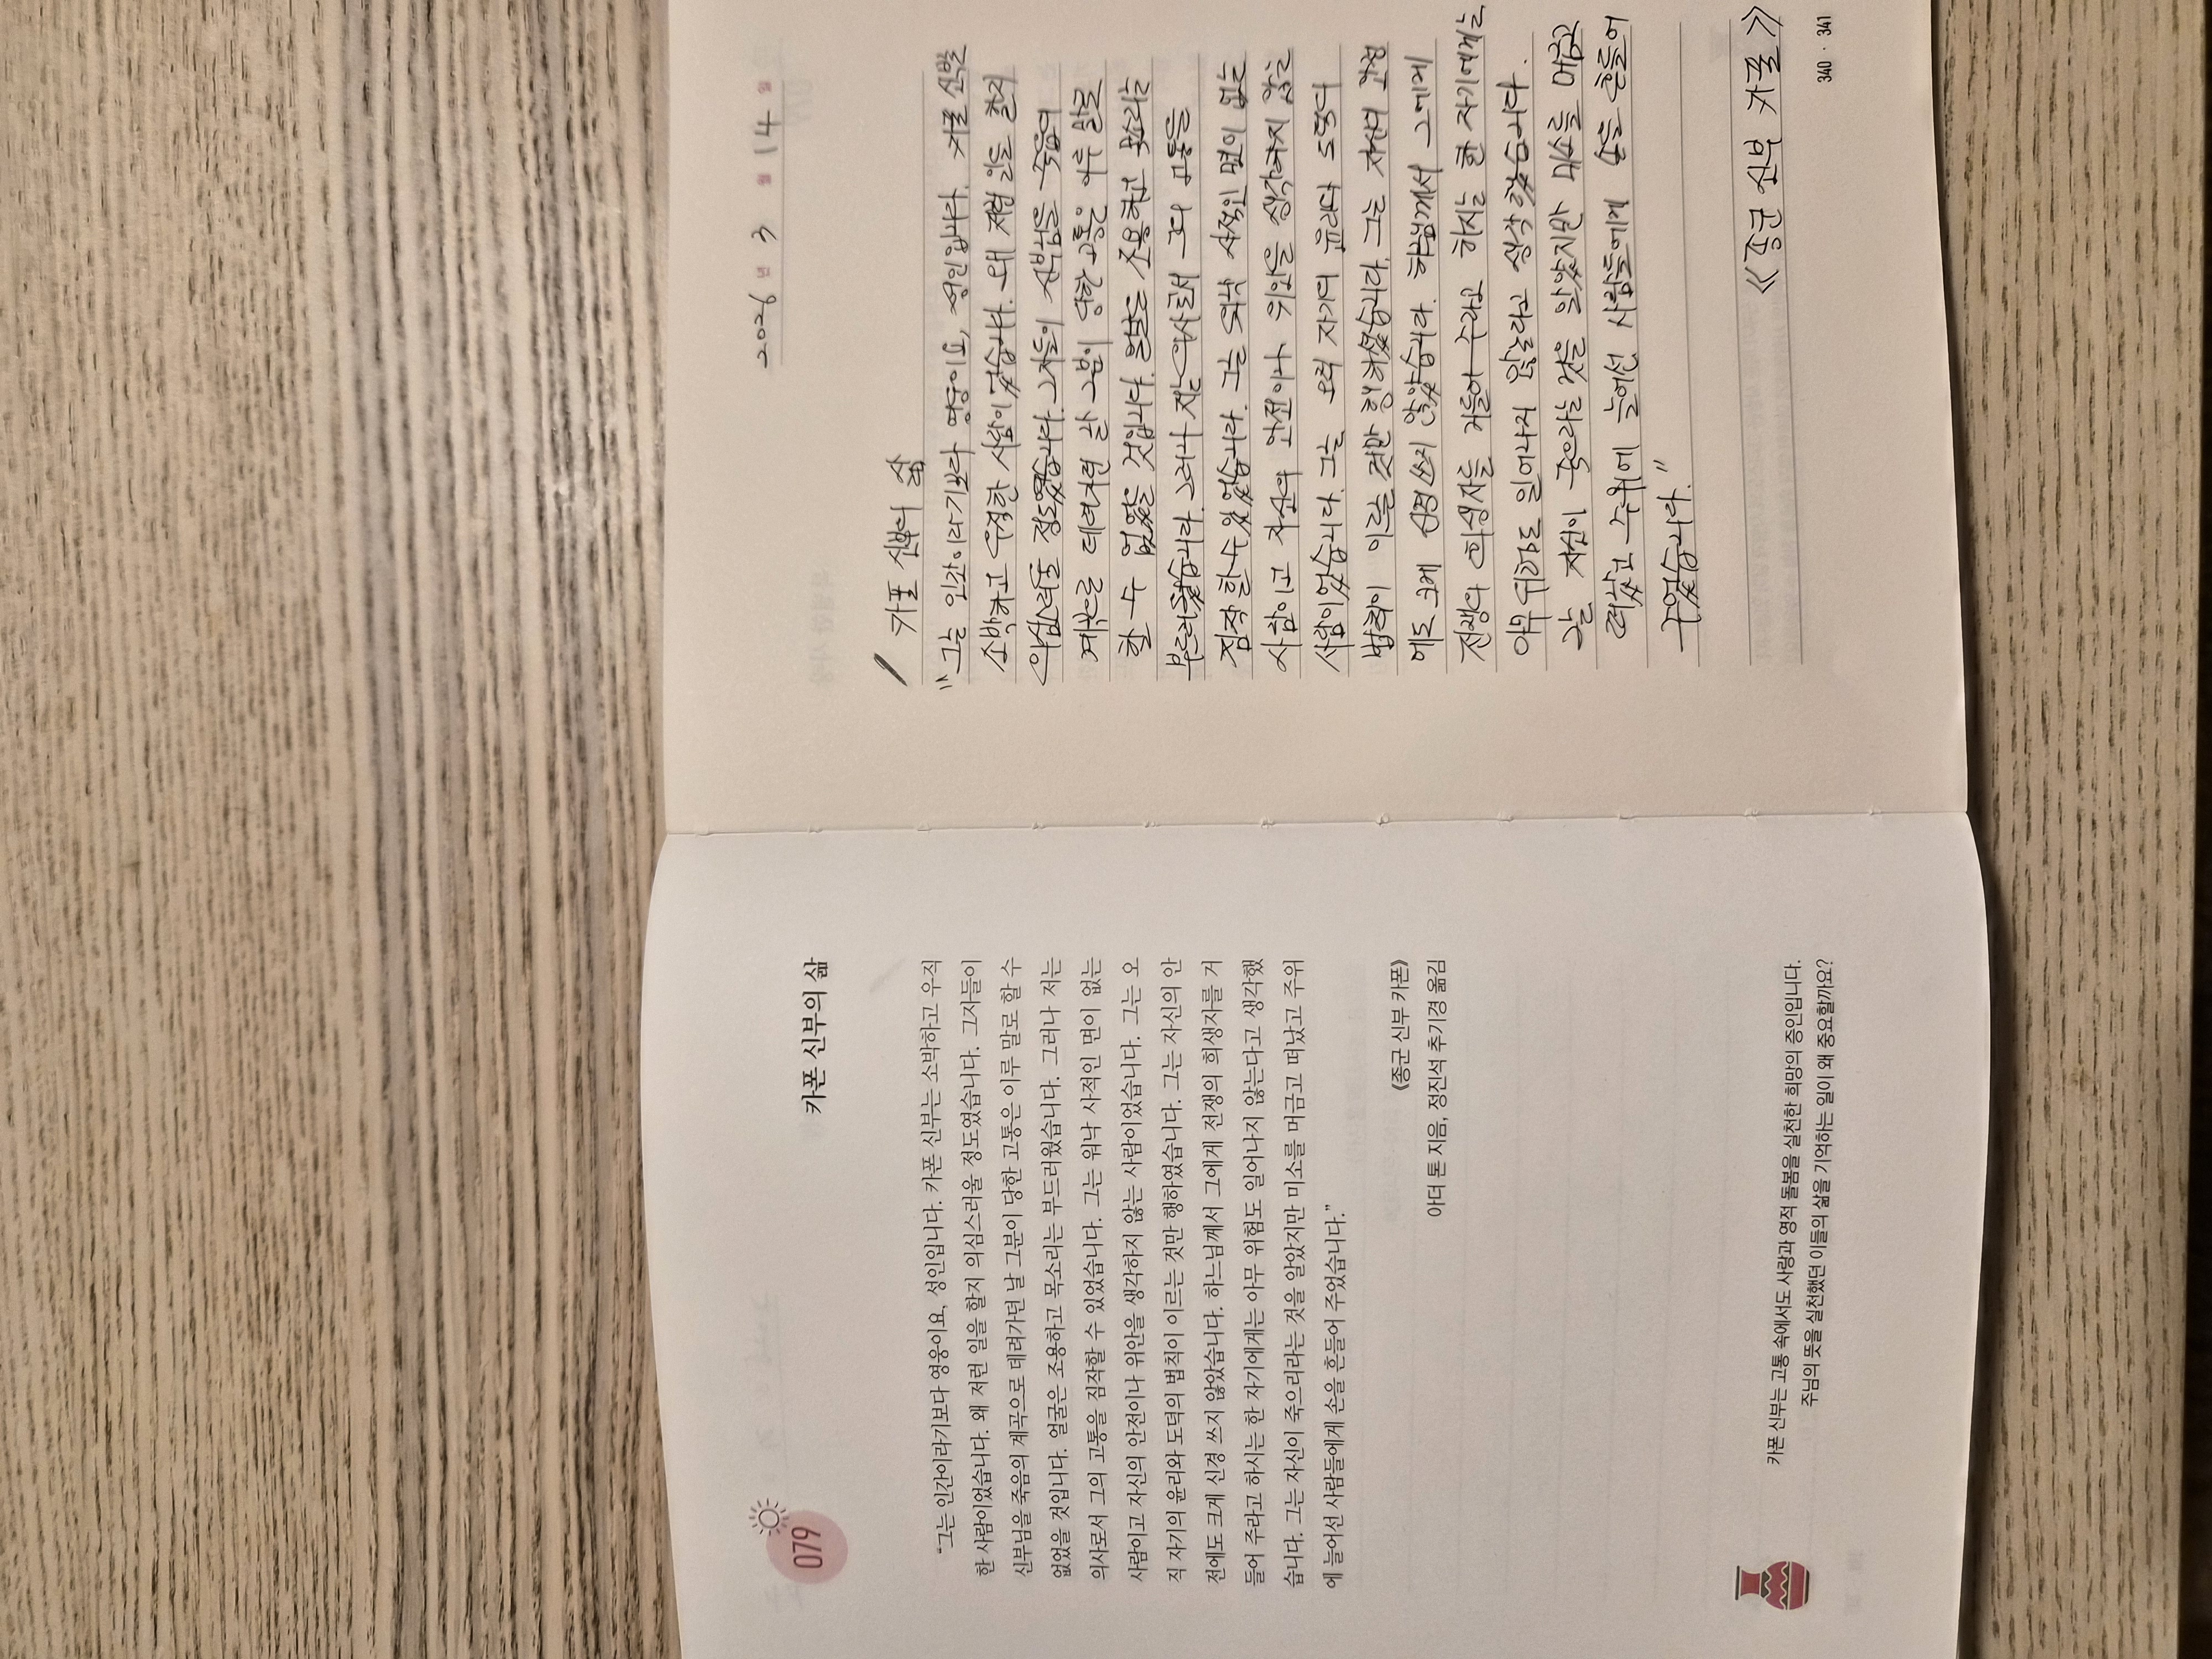 079
카폰 신부의 삶
“그는 인간이라기보다 영웅이요, 성인입니다. 카폰 신부는 소박하고 우직
한 사람이었습니다. 왜 저런 일을 할지 의심스러울 정도였습니다. 그자들이
신부님을 죽음의 계곡으로 데려가던 날 그분이 당한 고통은 이루 말로 할 수
없었을 것입니다. 얼굴은 조용하고 목소리는 부드러웠습니다. 그러나 저는
의사로서 그의 고통을 짐작할 수 있었습니다. 그는 워낙 사적인 면이 없는
사람이고 자신의 안전이나 위안을 생각하지 않는 사람이었습니다. 그는 오
직 자기의 윤리와 도덕의 법칙이 이르는 것만 행하였습니다. 그는 자신의 안
전에도 크게 신경 쓰지 않았습니다. 하느님께서 그에게 전쟁의 희생자를 거
들어 주라고 하시는 한 자기에게는 아무 위험도 일어나지 않는다고 생각했
습니다. 그는 자신이 죽으리라는 것을 알았지만 미소를 머금고 떠났고 주위
에 늘어선 사람들에게 손을 흔들어 주었습니다.”
《종군 신부 카폰》
아더 톤 지음, 정진석 추기경 옮김
카폰 신부는 고통 속에서도 사랑과 영적 돌봄을 실천한 희망의 증인입니다.
주님의 뜻을 실천했던 이들의 삶을 기억하는 일이 왜 중요할까요?
2026 년 3 월 14 일
카폰 신부의 삶
“그는 인간이라기보다 영웅이요, 성인입니다. 카폰 신부는
소박하고 우직한 사람이었습니다. 왜 저런 일을 할지
의심스러울 정도였습니다. 그자들이 신부님을 죽음의
계곡으로 데려가던 날 그분이 당한 고통은 이루 말로
할 수 없었을 것입니다. 얼굴은 조용하고 목소리는
부드러웠습니다. 그러나 저는 의사로서 그의 고통을
짐작할 수 있었습니다. 그는 워낙 사적인 면이 없는
사람이고 자신의 안전이나 위안을 생각하지 않는
사람이었습니다. 그는 오직 자기의 윤리와 도덕의
법칙이 이르는 것만 행하였습니다. 그는 자신의 안전
에도 크게 신경 쓰지 않았습니다. 하느님께서 그에게
전쟁의 희생자를 거들어 주라고 하시는 한 자기에게는
아무 위험도 일어나지 않는다고 생각했습니다.
그는 자신이 죽으리라는 것을 알았지만 미소를 머금고
떠났고 주위에 늘어선 사람들에게 손을 흔들어
주었습니다.”
《종군 신부 카폰》
340 · 341